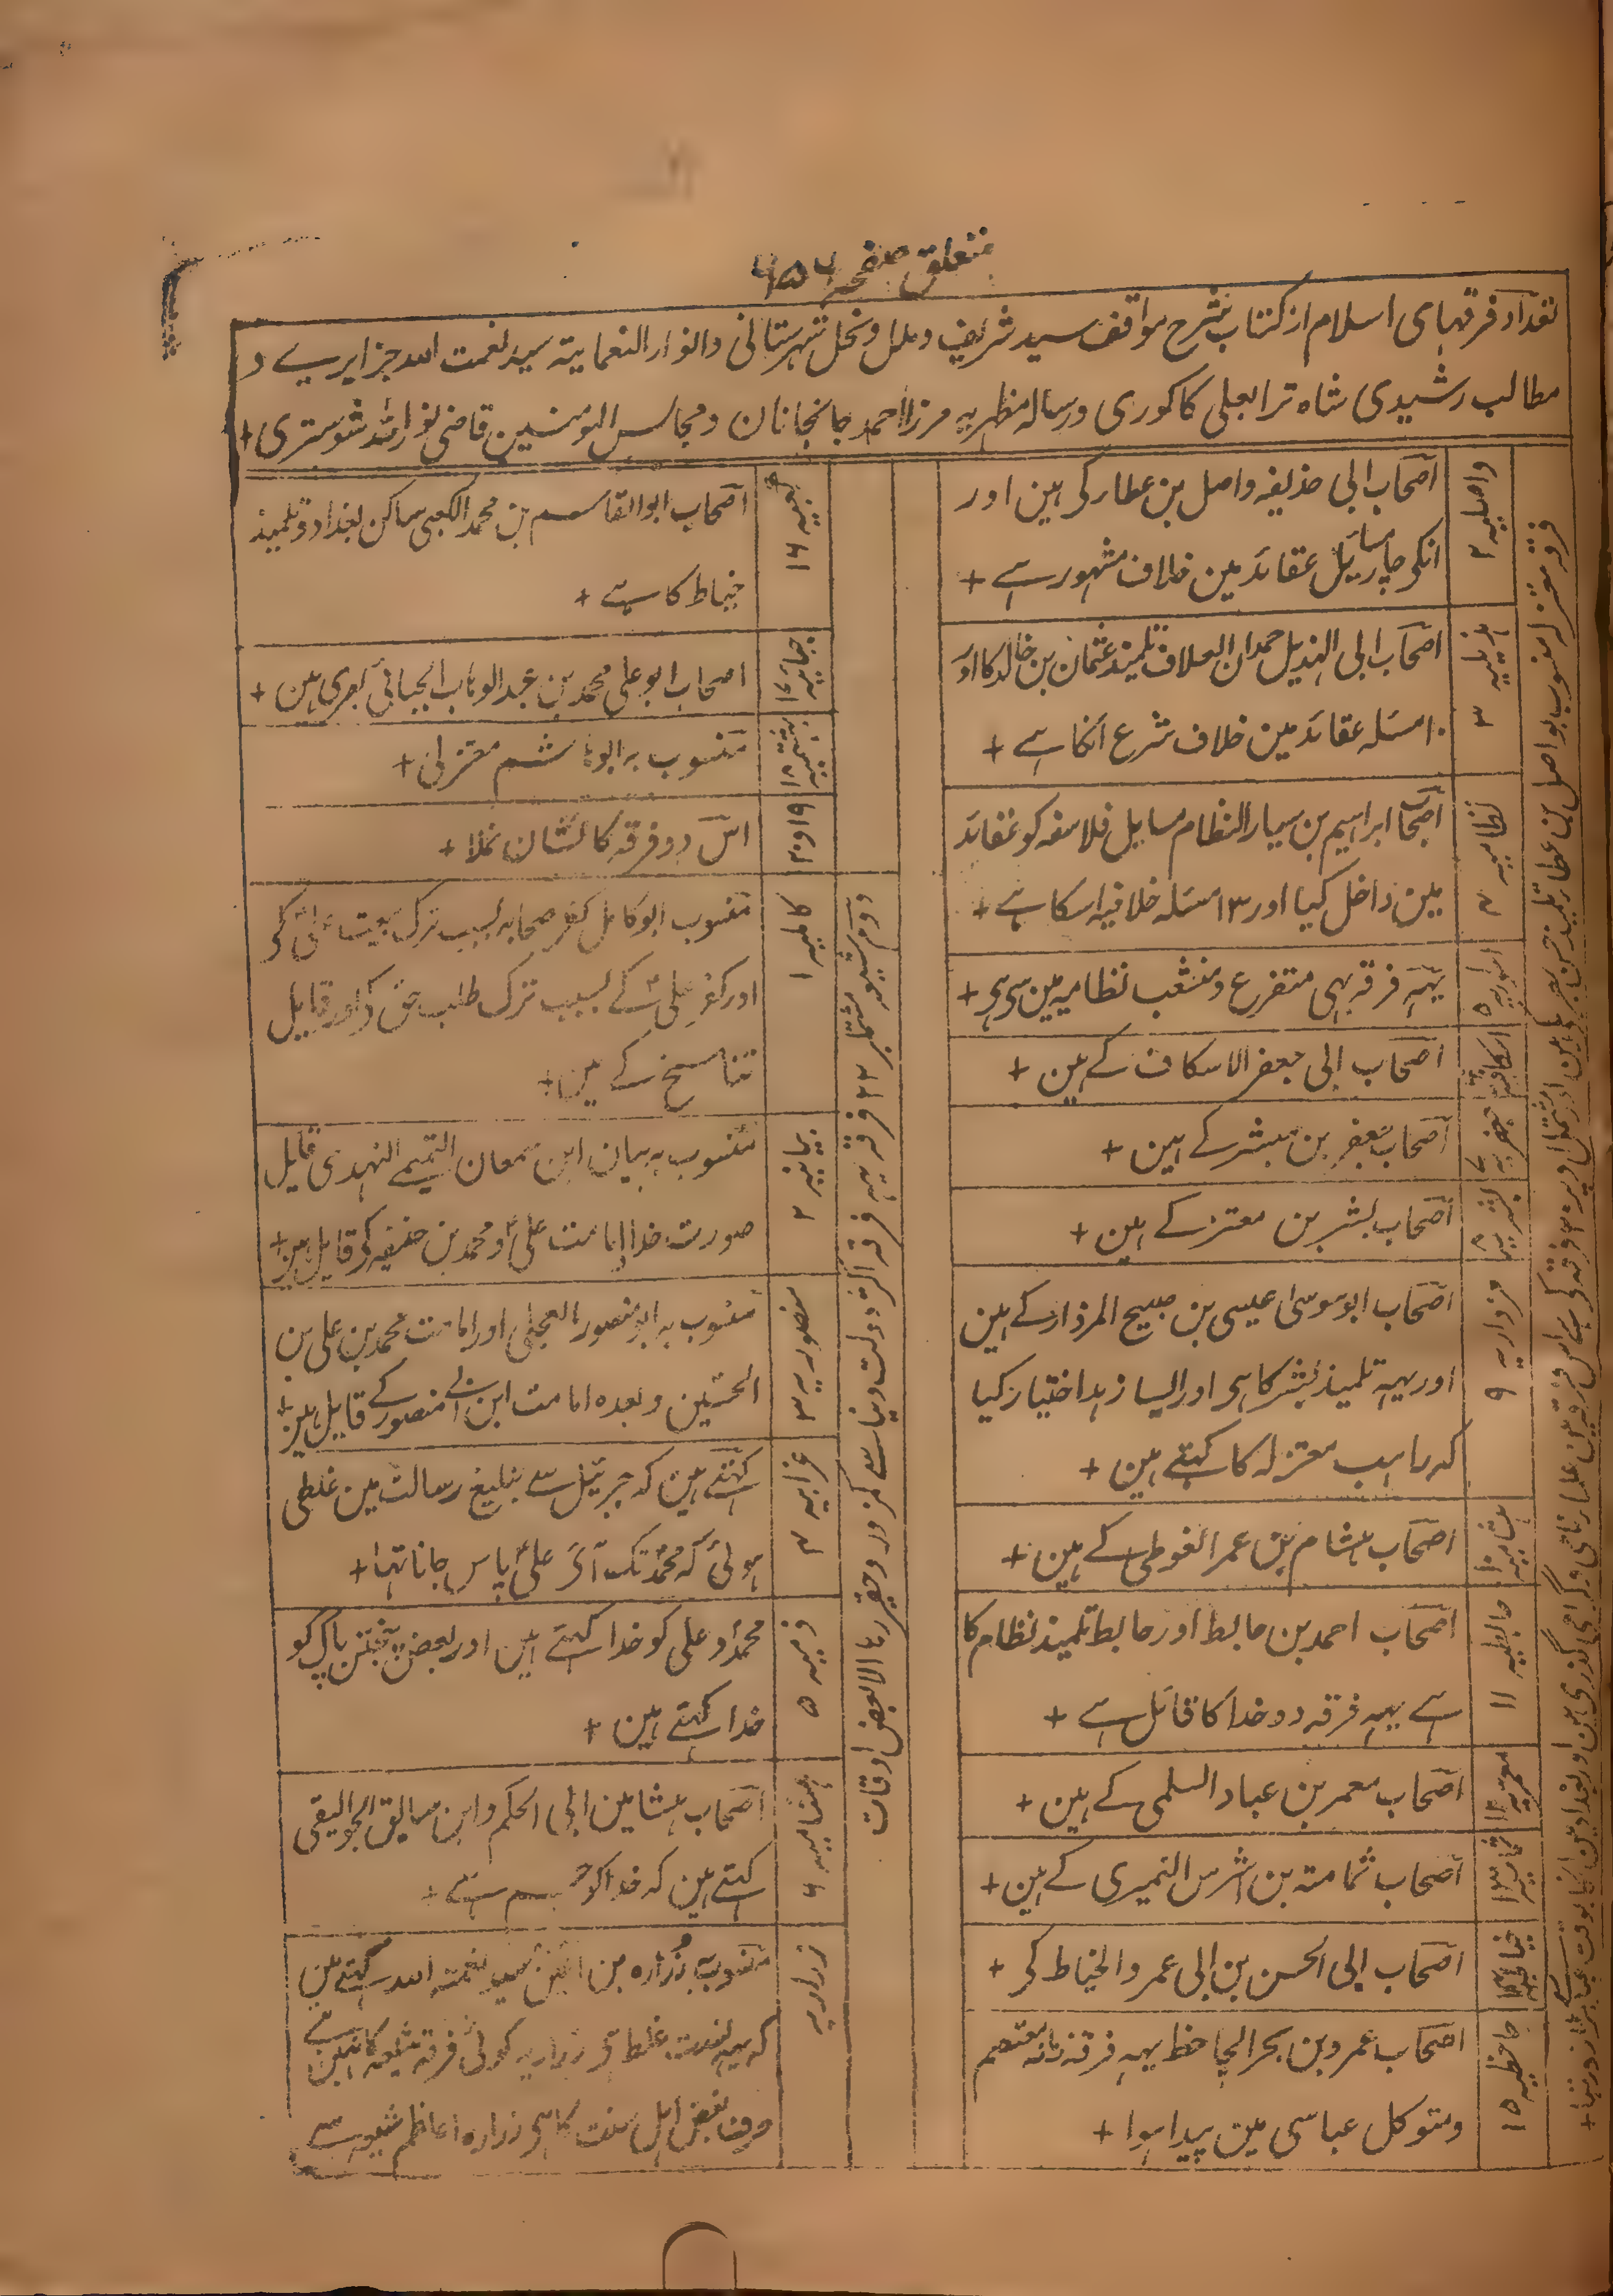 متعلق صفحہ ۶۵۶
تعداد فرقہای اسلام از کتاب شرح مواقف سید شریف و ملل و نحل شہرستانی و انوار النعمانیتہ سید نعمت اللہ جزایریے و
مطالب رشیدی شاہ تراب علی کاکوری و رسالہ مظہریہ مرزا احمد جانجانان و مجالس المومنین قاضی نور اللہ شوستری +
واصلیہ ۲
اصحاب ابی حذیفہ واصل بن عطار کی ہین اور
انکی چار مسایٔل عقائد مین خلاف مشہور ہے +
ہذیلیہ ۳
اصحاب ابی الہذیل حمدان العلاف تلمیذ عثمان بن خالد کا اور
۱۰ مسئلہ عقائد مین خلاف شرع انکا ہے +
نظامیہ ۴
اصحاب ابراہیم بن سیار النظام مسایل فلاسفہ کو عقائد
مین داخل کیا اور ۱۳ مسئلہ خلافیہ اسکا ہے +
اسواریہ ۵
یہہ فرقہ بہی متفرع و منشعب نظامیہ مین سی ہی +
اسکافیہ ۶
اصحاب ابی جعفر الاسکاف کے ہین +
جعفریہ ۷
اصحاب جعفر بن مبشر کے ہین +
بشریہ ۸
اصحاب بشر بن معتز کے ہین +
مزداریہ ۹
اصحاب ابو موسیٰ عیسی بن صبیح المزدار کے ہین
اور یہہ تلمیذ بشر کا ہی اور ایسا زہد اختیار کیا
کہ راہب معتزلہ کا کہتے ہین +
ہشامیہ ۱۰
اصحاب ہشام بن عمر الغوطی کے ہین +
حابطیہ ۱۱
اصحاب احمد بن حابط اور حابط تلمیذ نظام کا
ہے یہہ فرقہ دو خدا کا قائل ہے +
معمریہ ۱۲
اصحاب معمر بن عباد السلمی کے ہین +
ثمامیہ ۱۳
اصحاب ثمامتہ بن اشرس النمیری کے ہین +
خیاطیہ ۱۴
اصحاب ابی الحسن بن ابی عمر و الخیاط کی +
جاحظیہ ۱۵
اصحاب عمرو بن بحر الجاحظ یہہ فرقہ زمانہ معتصم
و متوکل عباسی مین پیدا ہوا +
فرقہ معتزلہ منسوب بواصل بن عطار تلمیذ حسن بصری
کعبیہ ۱۶
اصحاب ابوالقاسم بن محمد الکعبی ساکن بغداد و تلمیذ
خیاط کا ہے +
جبائیہ ۱۷
اصحاب ابو علی محمد بن عبد الوہاب الجبائی بصری ہین +
بہشمیہ ۱۸
منسوب بہ ابو ہاشم معتزلی +
۱۹ و ۲۰
اس دو فرقہ کا نشان نملا +
دوم شیعہ مشتمل بر ۲۲ فرقہ یہہ فرقہ اکثر دولت دنیا سے کمزور و حقیر رہا الا بعض اوقات
کاملیہ ۱
منسوب ابو کامل کفر صحابہ بسبب ترک بیعت علی کی
اور کفر علی کے بسبب ترک طلب حق کی اور قایل
تناسخ کے ہین +
بیانیہ ۲
منسوب بہ بیان ابن سمعان التمیمے النہدی قایل
صورت خدا امامت علی و محمد بن حنفیہ کی قایل ہین +
منصوریہ ۳
منسوب بہ ابو منصور العجلی اور امامت محمد بن علی بن
الحسین و بعدہ امامت ابن ابی منصور کے قایل ہین +
غرابیہ ۴
کہتے ہین کہ جبرئیل سے تبلیغ رسالت مین غلطی
ہوئی کہ محمد تک آئی علی پاس جانا تہا +
ذمیہ ۵
محمد و علی کو خدا کہتے ہین اور بعض پنجتن پاک کو
خدا کہتے ہین +
ہشامیہ ۶
اصحاب ہشامین ابی الحکم و ابن سالق الجوالیقی
کہتے ہین کہ خدا کو جسم ہے +
زراریہ
منسوب بہ زرارہ بن اعین سید نعمت اللہ کہتے ہین
کہ یہہ نسبت غلط ہی زراریہ کوئی فرقہ شیعہ کا نہین ہے
بعض اہل سنت کا ہی زرارہ اعاظم شیعہ ہے